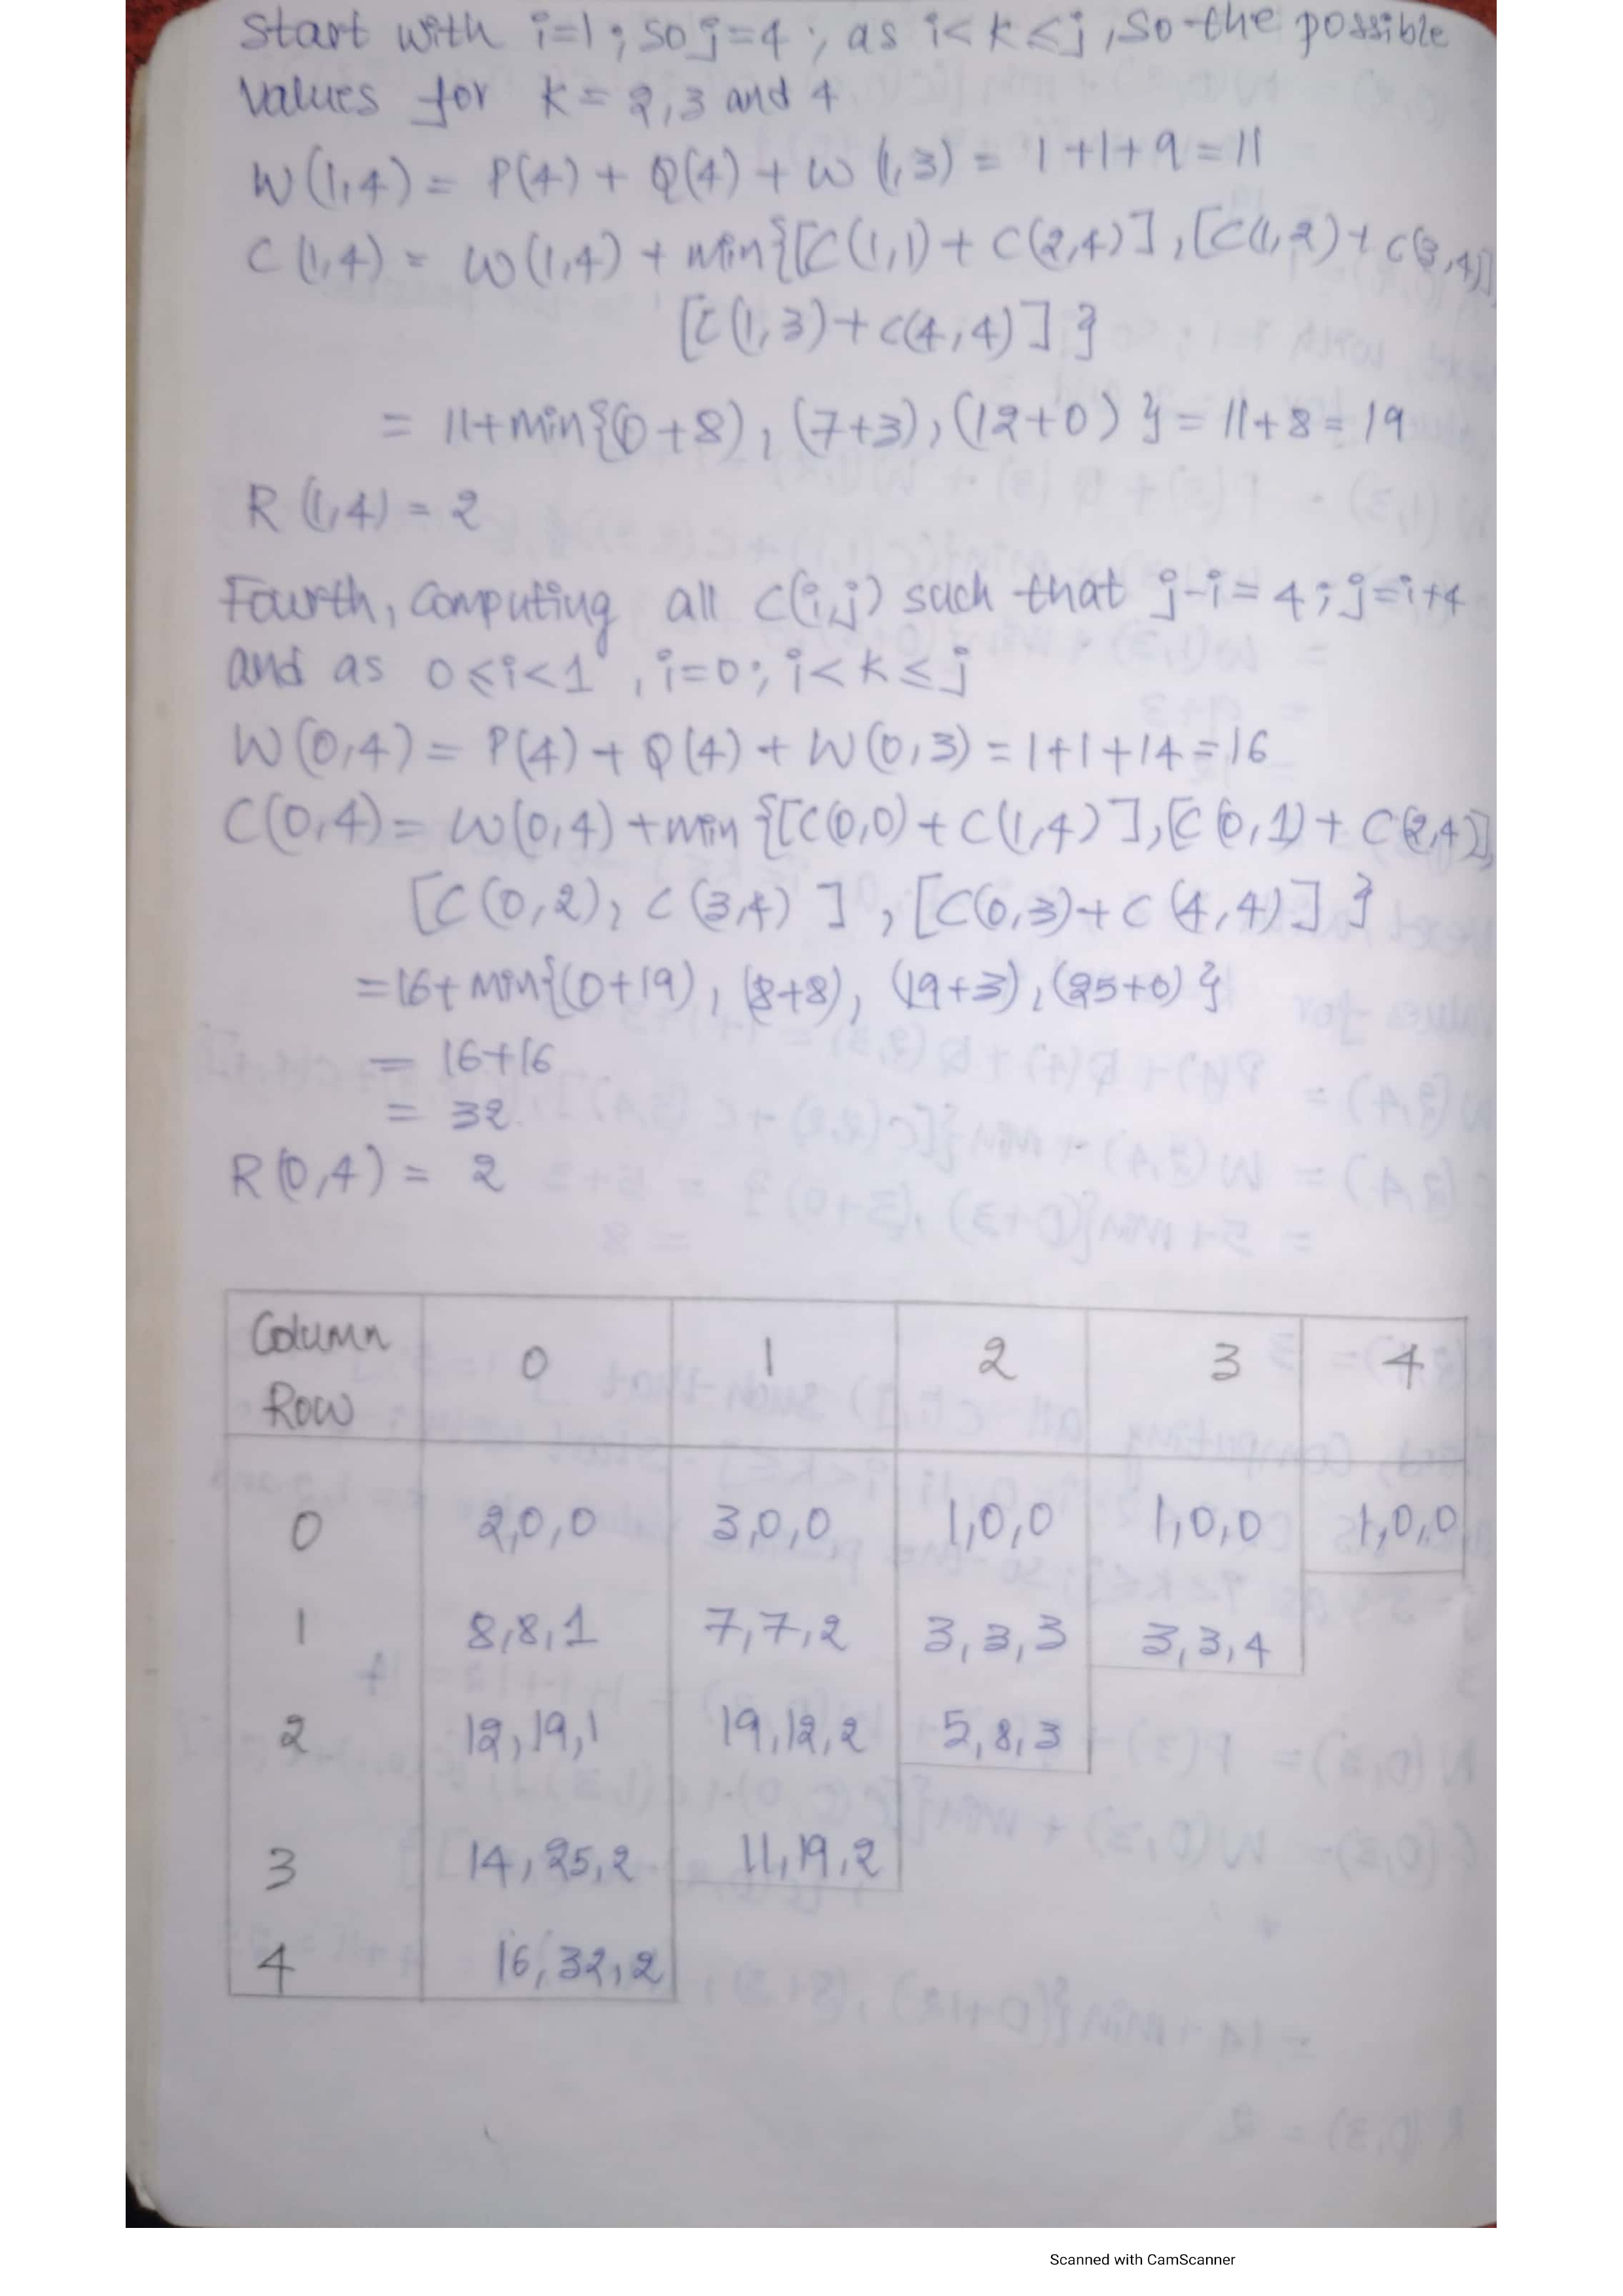 Start with i=1; so j=4; as i<k≤j, so the possible
values for k = 2,3 and 4
W(1,4) = P(4) + Q(4) + W(1,3) = 1+1+9=11
C(1,4) = W(1,4) + min{[C(1,1)+C(2,4)],[C(1,2)+C(3,4)]
[C(1,3)+C(4,4)]}
= 11+min{(0+8),(7+3),(12+0)}=11+8=19
R(1,4) = 2
Fourth, Computing all C(i,j) such that j-i=4; j=i+4
and as 0≤i<1, i=0; i<k≤j
W(0,4) = P(4) + Q(4) + W(0,3) = 1+1+14=16
C(0,4) = W(0,4)+min{[C(0,0)+C(1,4)],[C(0,1)+C(2,4)],
[C(0,2), C(3,4)],[C(0,3)+C(4,4)]}
=16+min{(0+19),(8+8),(19+3),(25+0)}
= 16+16
= 32.
R(0,4) = 2
Column
Row 0 1 2 3 4
0 2,0,0 3,0,0 1,0,0 1,0,0 1,0,0
1 8,8,1 7,7,2 3,3,3 3,3,4
2 12,19,1 19,12,2 5,8,3
3 14,25,2 11,19,2
4 16,32,2
Scanned with CamScanner